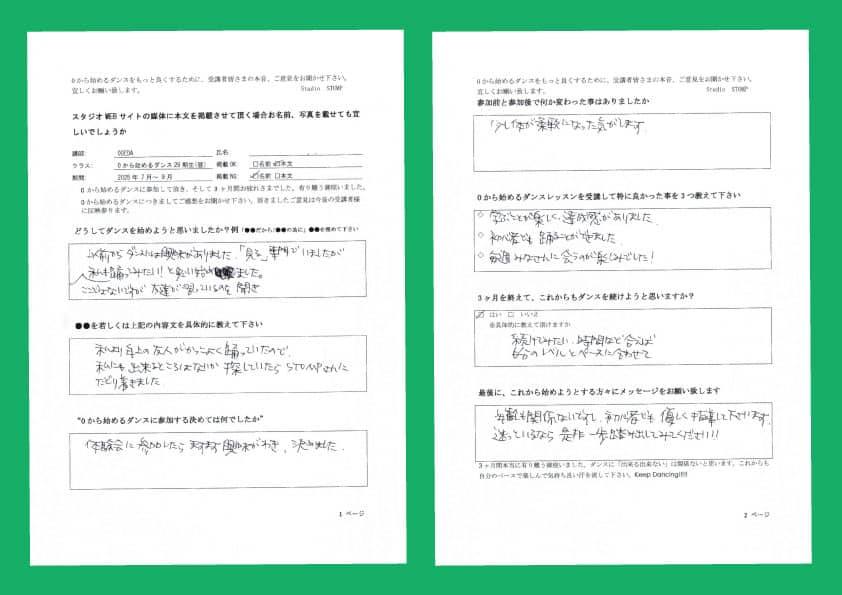 0から始めるダンスをもっと良くするために、受講者皆さまの本音、ご意見をお聞かせ下さい。
宜しくお願い致します。 Studio STOMP
スタジオWEBサイトの媒体に本文を掲載させて頂く場合お名前、写真を載せても宜
しいでしょうか
講師: OOEDA 氏名:
クラス: 0から始めるダンス29期生(昼) 掲載OK: □名前 ☑本文
期間: 2025年7月〜9月 掲載NG: ☑名前 □本文
0から始めるダンスに参加して頂き、そして3ヶ月間お疲れさまでした。有り難う御座いました。
0から始めるダンスにつきましてご感想をお聞かせ下さい。頂きましたご意見は今後の受講者様
に反映参ります。
どうしてダンスを始めようと思いましたか?例「●●だから!●●の為に」●●を埋めて下さい
以前からダンスには興味がありました。「見る」専門でいましたが
私も踊ってみたい!と思い始めました。
ここどではないですが 友達が習っているのを聞き
●●を若しくは上記の内容文を具体的に教えて下さい
私より年上の友人がかっこよく踊っていたので、
私にも出来るところはないか探していたらSTOMPさんに
たどり着きました
"0から始めるダンスに参加する決めては何でしたか"
体験会に参加したら ますます興味がわき、決めました.
1 ページ
0から始めるダンスをもっと良くするために、受講者皆さまの本音、ご意見をお聞かせ下さい。
宜しくお願い致します。 Studio STOMP
参加前と参加後で何か変わった事はありましたか
少し体が柔軟になった気がします
0から始めるダンスレッスンを受講して特に良かった事を3つ教えて下さい
◇ 学ぶことが楽しく、達成感がありました.
◇ 初心者でも踊ることができました.
◇ 毎週みなさんに会うのが楽しみでした!
3ヶ月を終えて、これからもダンスを続けようと思いますか?
☑ はい □ いいえ
※具体的に教えて頂けますか
続けてみたい。時間など合えば
自分のレベルとペースに合わせて
最後に、これから始めようとする方々にメッセージをお願い致します
年齢も関係ないですし、初心者でも優しく指導して下さいます.
迷っているなら是非一歩踏み出してみてください!!
3ヶ月間本当に有り難う御座いました。ダンスに「出来る出来ない」は関係ないと思います。これからも
自分のペースで楽しんで気持ち良い汗を流して下さい。Keep Dancing!!!!
2 ページ